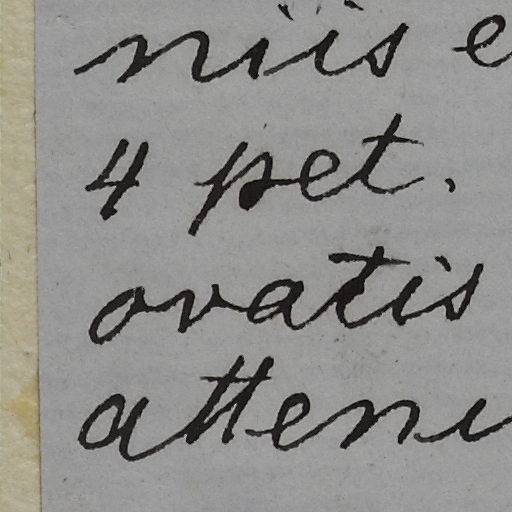 niis e
4 pet.
ovatis
attenu